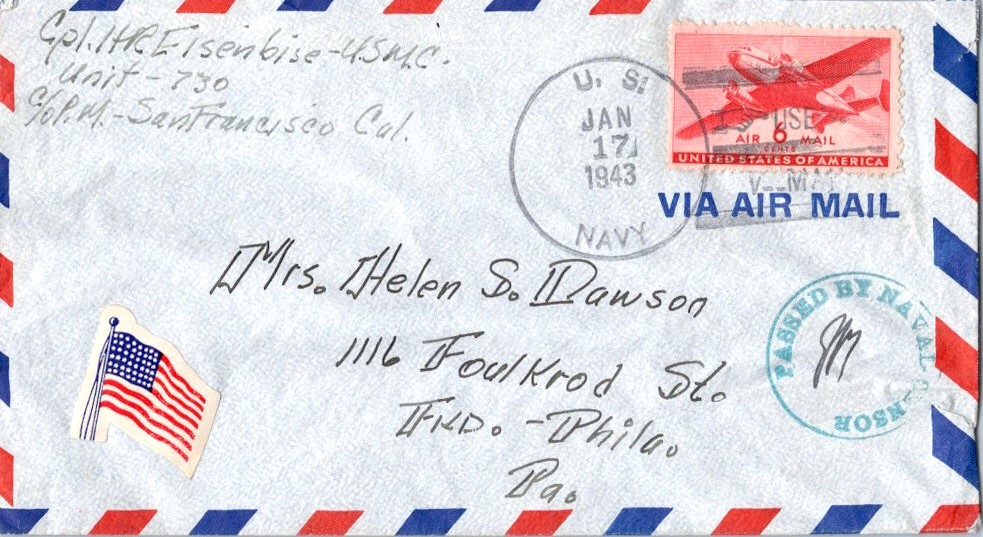 Cpl. H R Eisenbise - U.S.M.C.
Unit - 730
C/o P.M. - San Francisco Cal.
U. S.
JAN
17
1943
NAVY
USE
V--MAI
AIR 6 MAIL
CENTS
UNITED STATES OF AMERICA
VIA AIR MAIL
Mrs. Helen S. Dawson
1116 Foulkrod St.
FKD. - Phila.
Pa.
PASSED BY NAVAL CENSOR